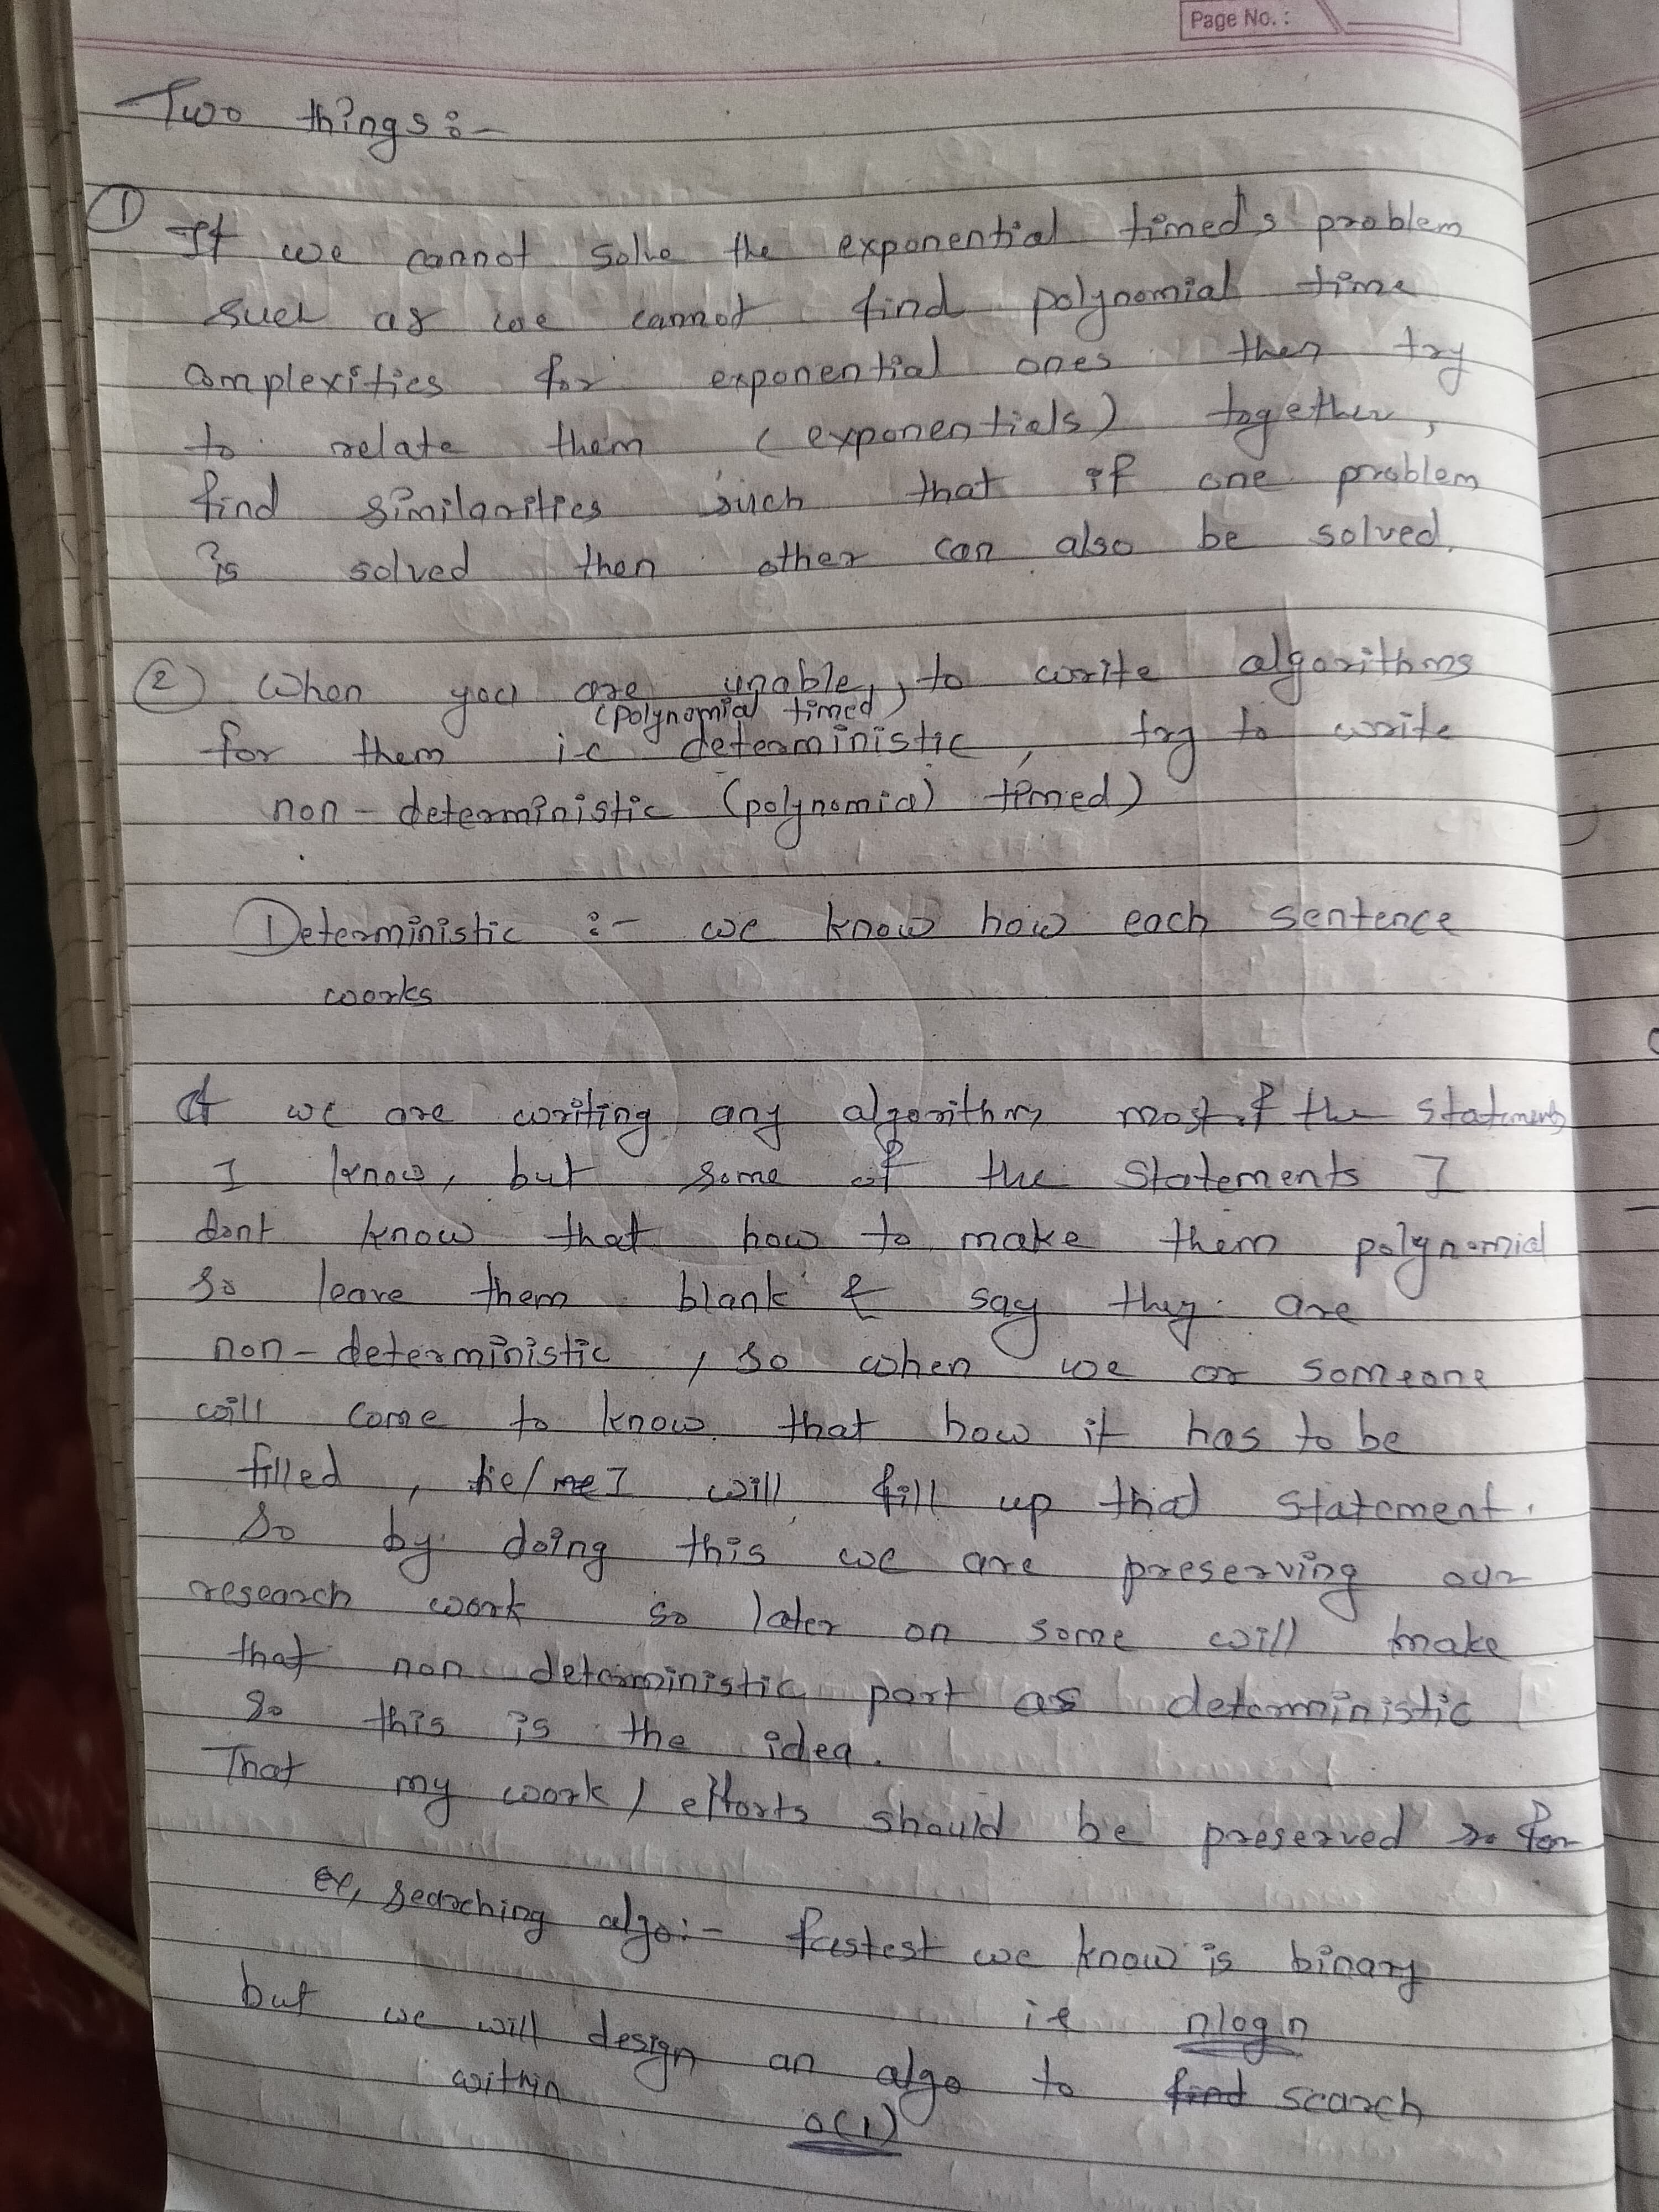 Page No. :
Two things:-
① If we cannot solve the exponential timed's problem
such as we cannot find polynomial time
complexities for exponential ones then try
to relate them (exponentials) together,
find similarities such that if one problem
is solved then other can also be solved.
② When you are unable, to write algorithms
(polynomial timed)
for them i.e deterministic, try to write
non-deterministic (polynomial timed)
Deterministic :- we know how each sentence
works
If we are writing any algorithm most of the statements
I know, but some of the statements I
dont know that how to make them polynomial
so leave them blank & say they are
non-deterministic, so when we or someone
will come to know that how it has to be
filled, he/me I will fill up that statement.
So by doing this we are preserving our
research work so later on some will make
that non deterministic part as deterministic
so this is the idea.
That my work / efforts should be preserved so for
ex, searching algo:- fastest we know is binary
i.e nlogn
but we will design an algo to find search
within O(1)